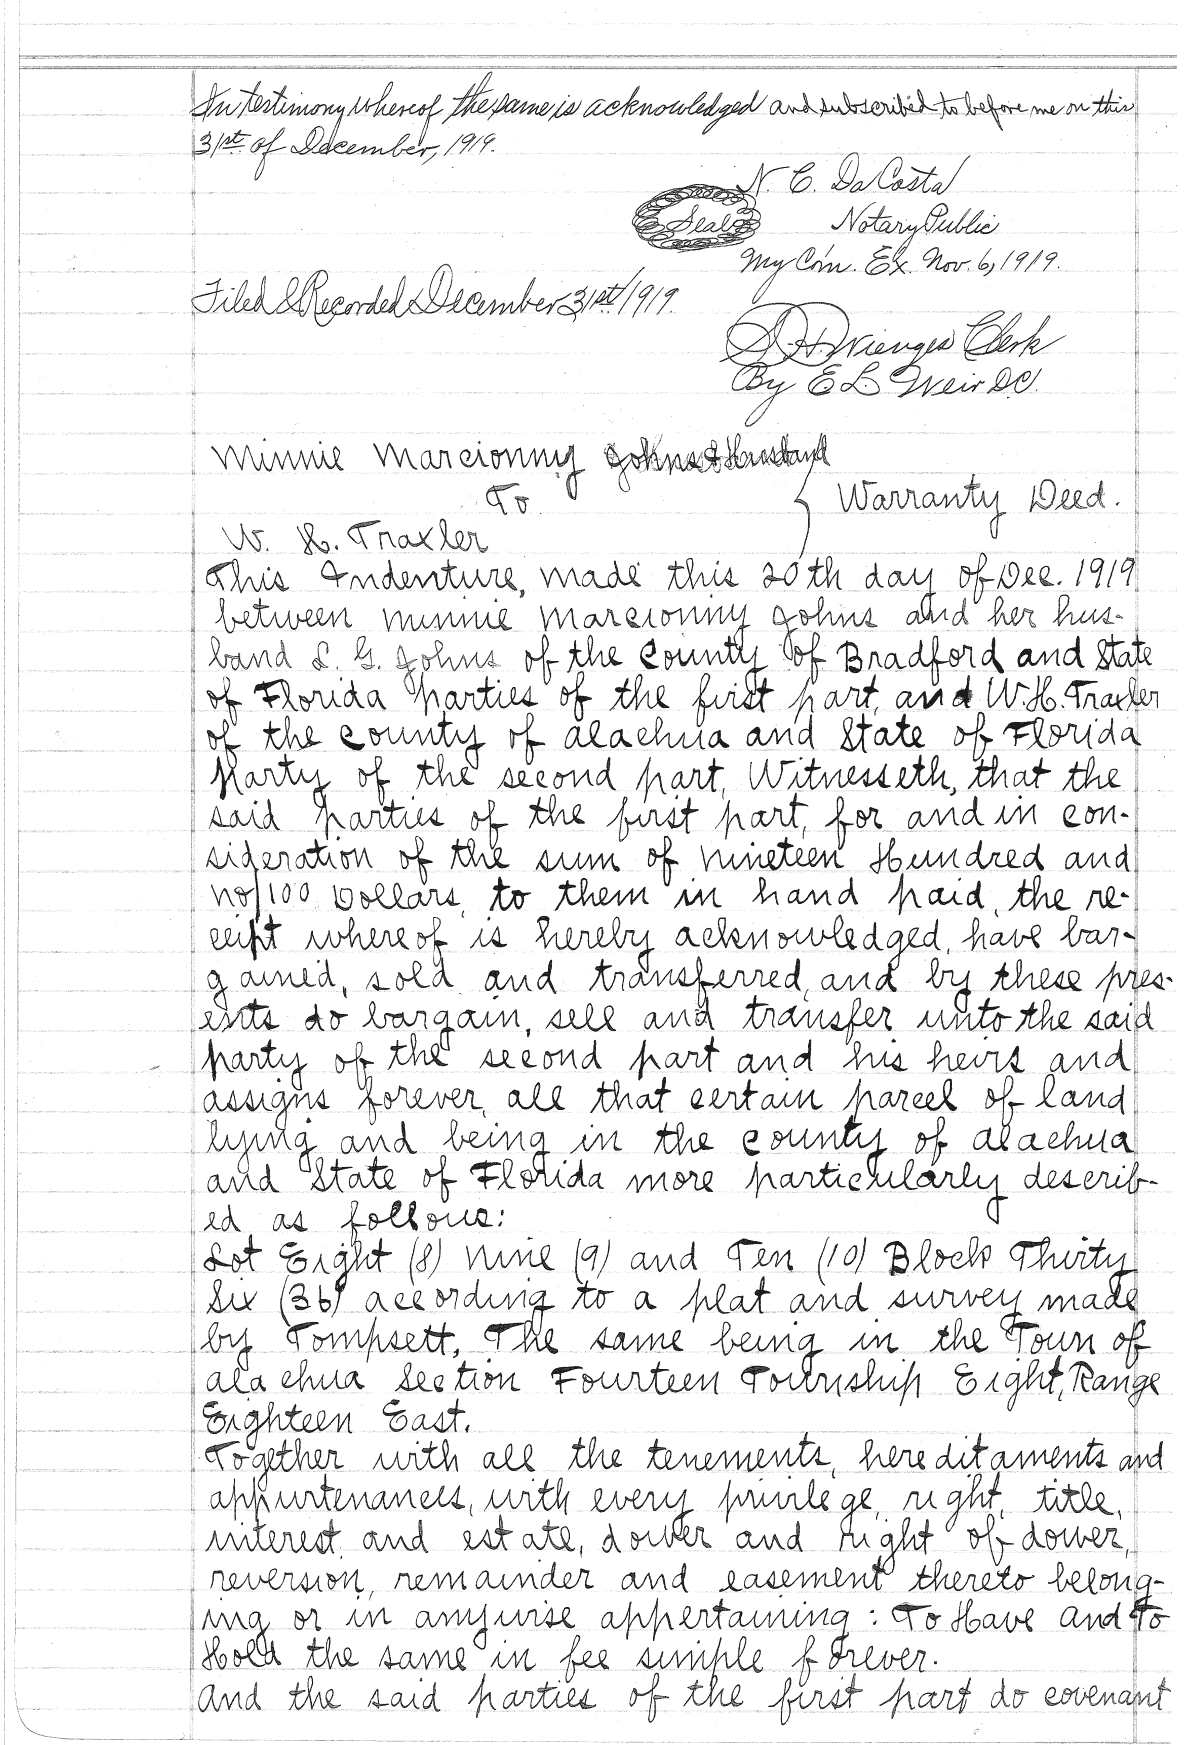 In testimony whereof the same is acknowledged and subscribed to before me on this
31st of December, 1919.
N. C. DaCosta
Seal
Notary Public
My Com. Ex. Nov. 6, 1919.
Filed & Recorded December 31st/1919.
S. H. Wienges Clerk
By E L Weir D.C.
Minnie Marcionny Johns & Husband
To
Warranty Deed.
W. H. Traxler
This Indenture, made this 20th day of Dec. 1919
between Minnie Marcionny Johns and her hus-
band L. G. Johns of the County of Bradford and State
of Florida Parties of the first part, and W. H. Traxler
of the County of Alachua and State of Florida
Party of the second part, Witnesseth, that the
said parties of the first part, for and in con-
sideration of the sum of Nineteen Hundred and
no/100 Dollars, to them in hand paid, the re-
ceipt whereof is hereby acknowledged, have bar-
gained, sold and transferred, and by these pres-
ents do bargain, sell and transfer unto the said
party of the second part and his heirs and
assigns forever, all that certain parcel of land
lying and being in the County of Alachua
and State of Florida more particularly describ-
ed as follows:
Lot Eight (8) Nine (9) and Ten (10) Block Thirty
Six (36) according to a plat and survey made
by Tompsett, The same being in the Town of
Alachua Section Fourteen Township Eight, Range
Eighteen East.
Together with all the tenements, hereditaments and
appurtenances, with every privilege, right, title,
interest and estate, dower and right of dower,
reversion, remainder and easement thereto belong-
ing or in anywise appertaining: To Have and To
Hold the same in fee simple forever.
And the said parties of the first part do covenant